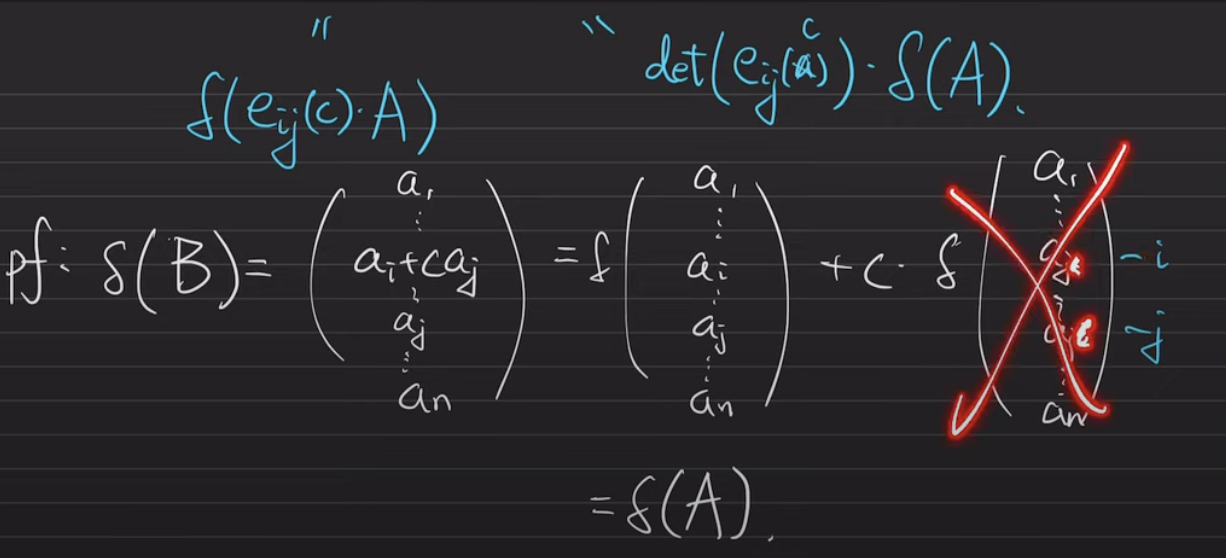 " "
f(e_ij(c)·A) det(e_ij(c))·f(A).
pf: f(B) = ( a_1 ⋮ a_i+ca_j ⋮ a_j ⋮ a_n ) = f( a_1 ⋮ a_i ⋮ a_j ⋮ a_n ) + c· f( a_1 ⋮ a_j ⋮ a_j ⋮ a_n ) -i -j
= f(A).